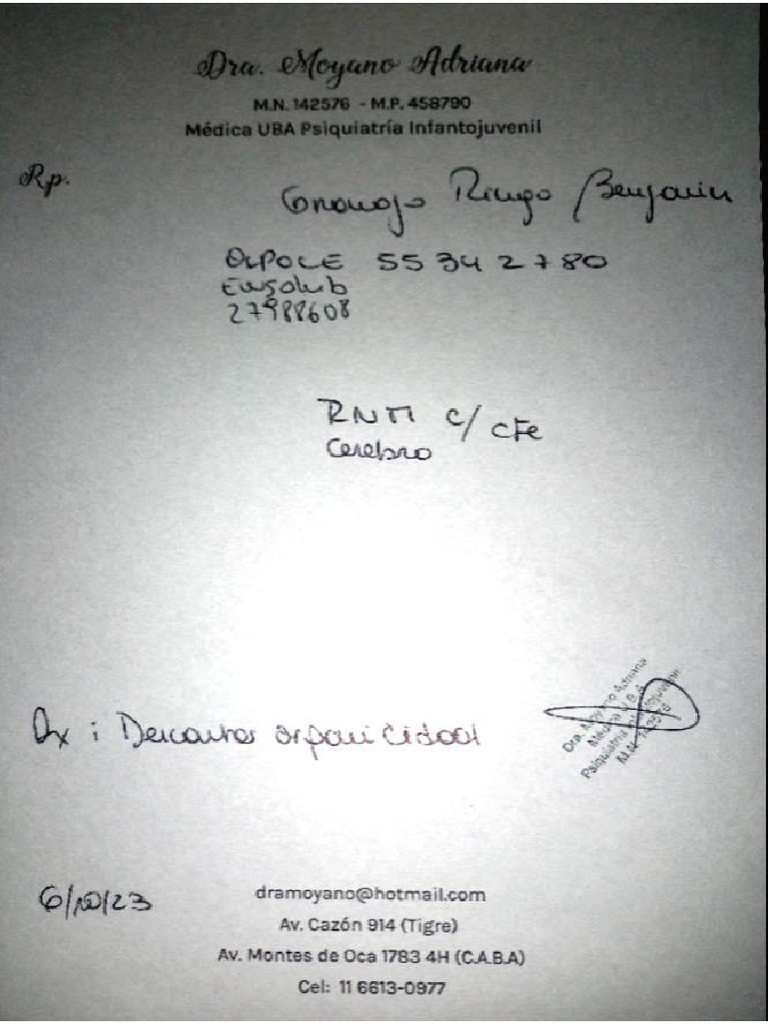 Dra. Moyano Adriana
M.N. 142576 - M.P. 458790
Médica UBA Psiquiatría Infantojuvenil
Rp.
Ringo Benjamin
55342780
27988608
RNM c/ cte
Cerebro
Dx : Descartar organicidad
Dra. Moyano Adriana
Médica U.B.A
Psiquiatría Infantojuvenil
M.N. 142576
6/10/23
dramoyano@hotmail.com
Av. Cazón 914 (Tigre)
Av. Montes de Oca 1783 4H (C.A.B.A)
Cel: 11 6613-0977